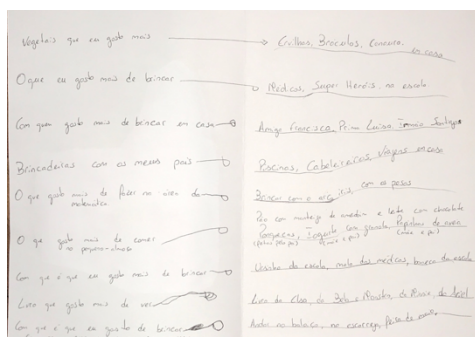 Vegetais que eu gosto mais → Ervilhas, Brocolos, Cenoura, em casa
O que eu gosto mais de brincar Médicos, Super Heróis, na escola
Com quem gosto mais de brincar em casa Amiga Francisca, Prima Luisa, Irmão
Brincadeiras com os meus pais Piscinas, Cabeleireiros, Viagens em casa
O que gosto mais de fazer na área da matemática Brincar com o com os pesos
O que gosto mais de comer no pequeno-almoço Pão com manteiga de amendoim e leite com chocolate
Panquecas, Iogurte com granola, Papinhas de aveia
Com que é que eu gosto mais de brincar da escola, mala dos médicos, boneca da escola
Livro que gosto mais de ver Livro do da Bela e Monstro, da da Ariel
Com que é que eu gosto de brincar Andar no baloiço, no escorrega,